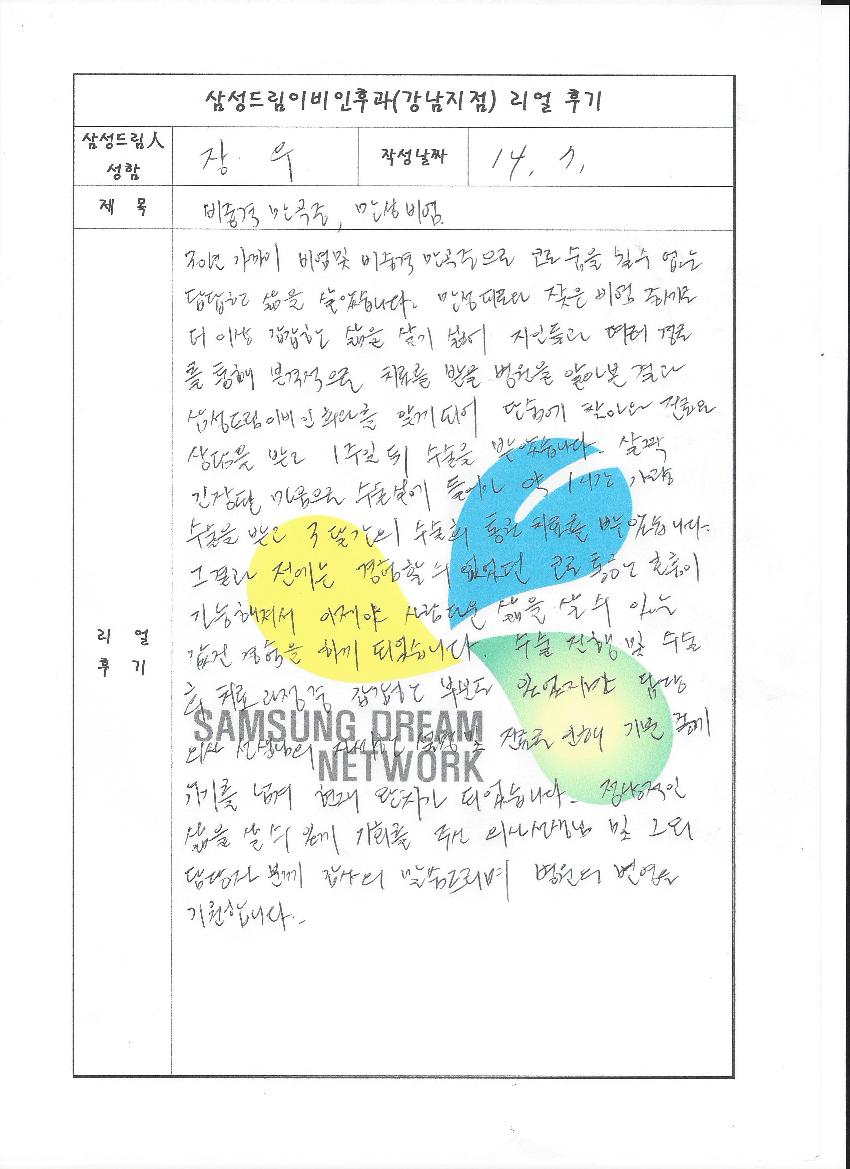 삼성드림이비인후과(강남지점) 리얼 후기
삼성드림人
성함
장 우
작성날짜
14. 7.
제 목
비중격 만곡증, 만성비염.
리 얼
후 기
30년 가까이 비염및 비중격 만곡증으로 코로 숨을 쉴수 없는
답답한 삶을 살았습니다. 만성피로와 잦은 비염
더 이상 갑갑한 삶을 살기 싫어 지인들과 여러 경로
를 통해 본격적으로 치료를 받을 병원을 알아본 결과
삼성드림이비인후과를 알게되어 단숨에 찾아와 진료와
상담을 받고 1주일 뒤 수술을 받았습니다. 살짝
긴장된 마음으로 수술실에 들어가 약 1시간 가량
수술을 받고 3달간의 수술후 통원 치료를 받았습니다.
그결과 전에는 경험할 수 없었던 코로 통하는 호흡이
가능해져서 이제야 사람다운 삶을 살 수 있는
값진 경험을 하게 되었습니다. 수술 진행 및 수술
후 치료 과정중 갑갑한 부분도 있었지만 담당
의사 선생님의 자세한 설명 및 진료로 인해 기쁜 좋게
위기를 넘겨 현재 완치가 되었습니다. 정상적인
삶을 살 수 있게 기회를 주신 의사선생님 및 그외
담당자 분께 감사의 말씀드리며 병원의 번영을
기원합니다.
SAMSUNG DREAM
NETWORK